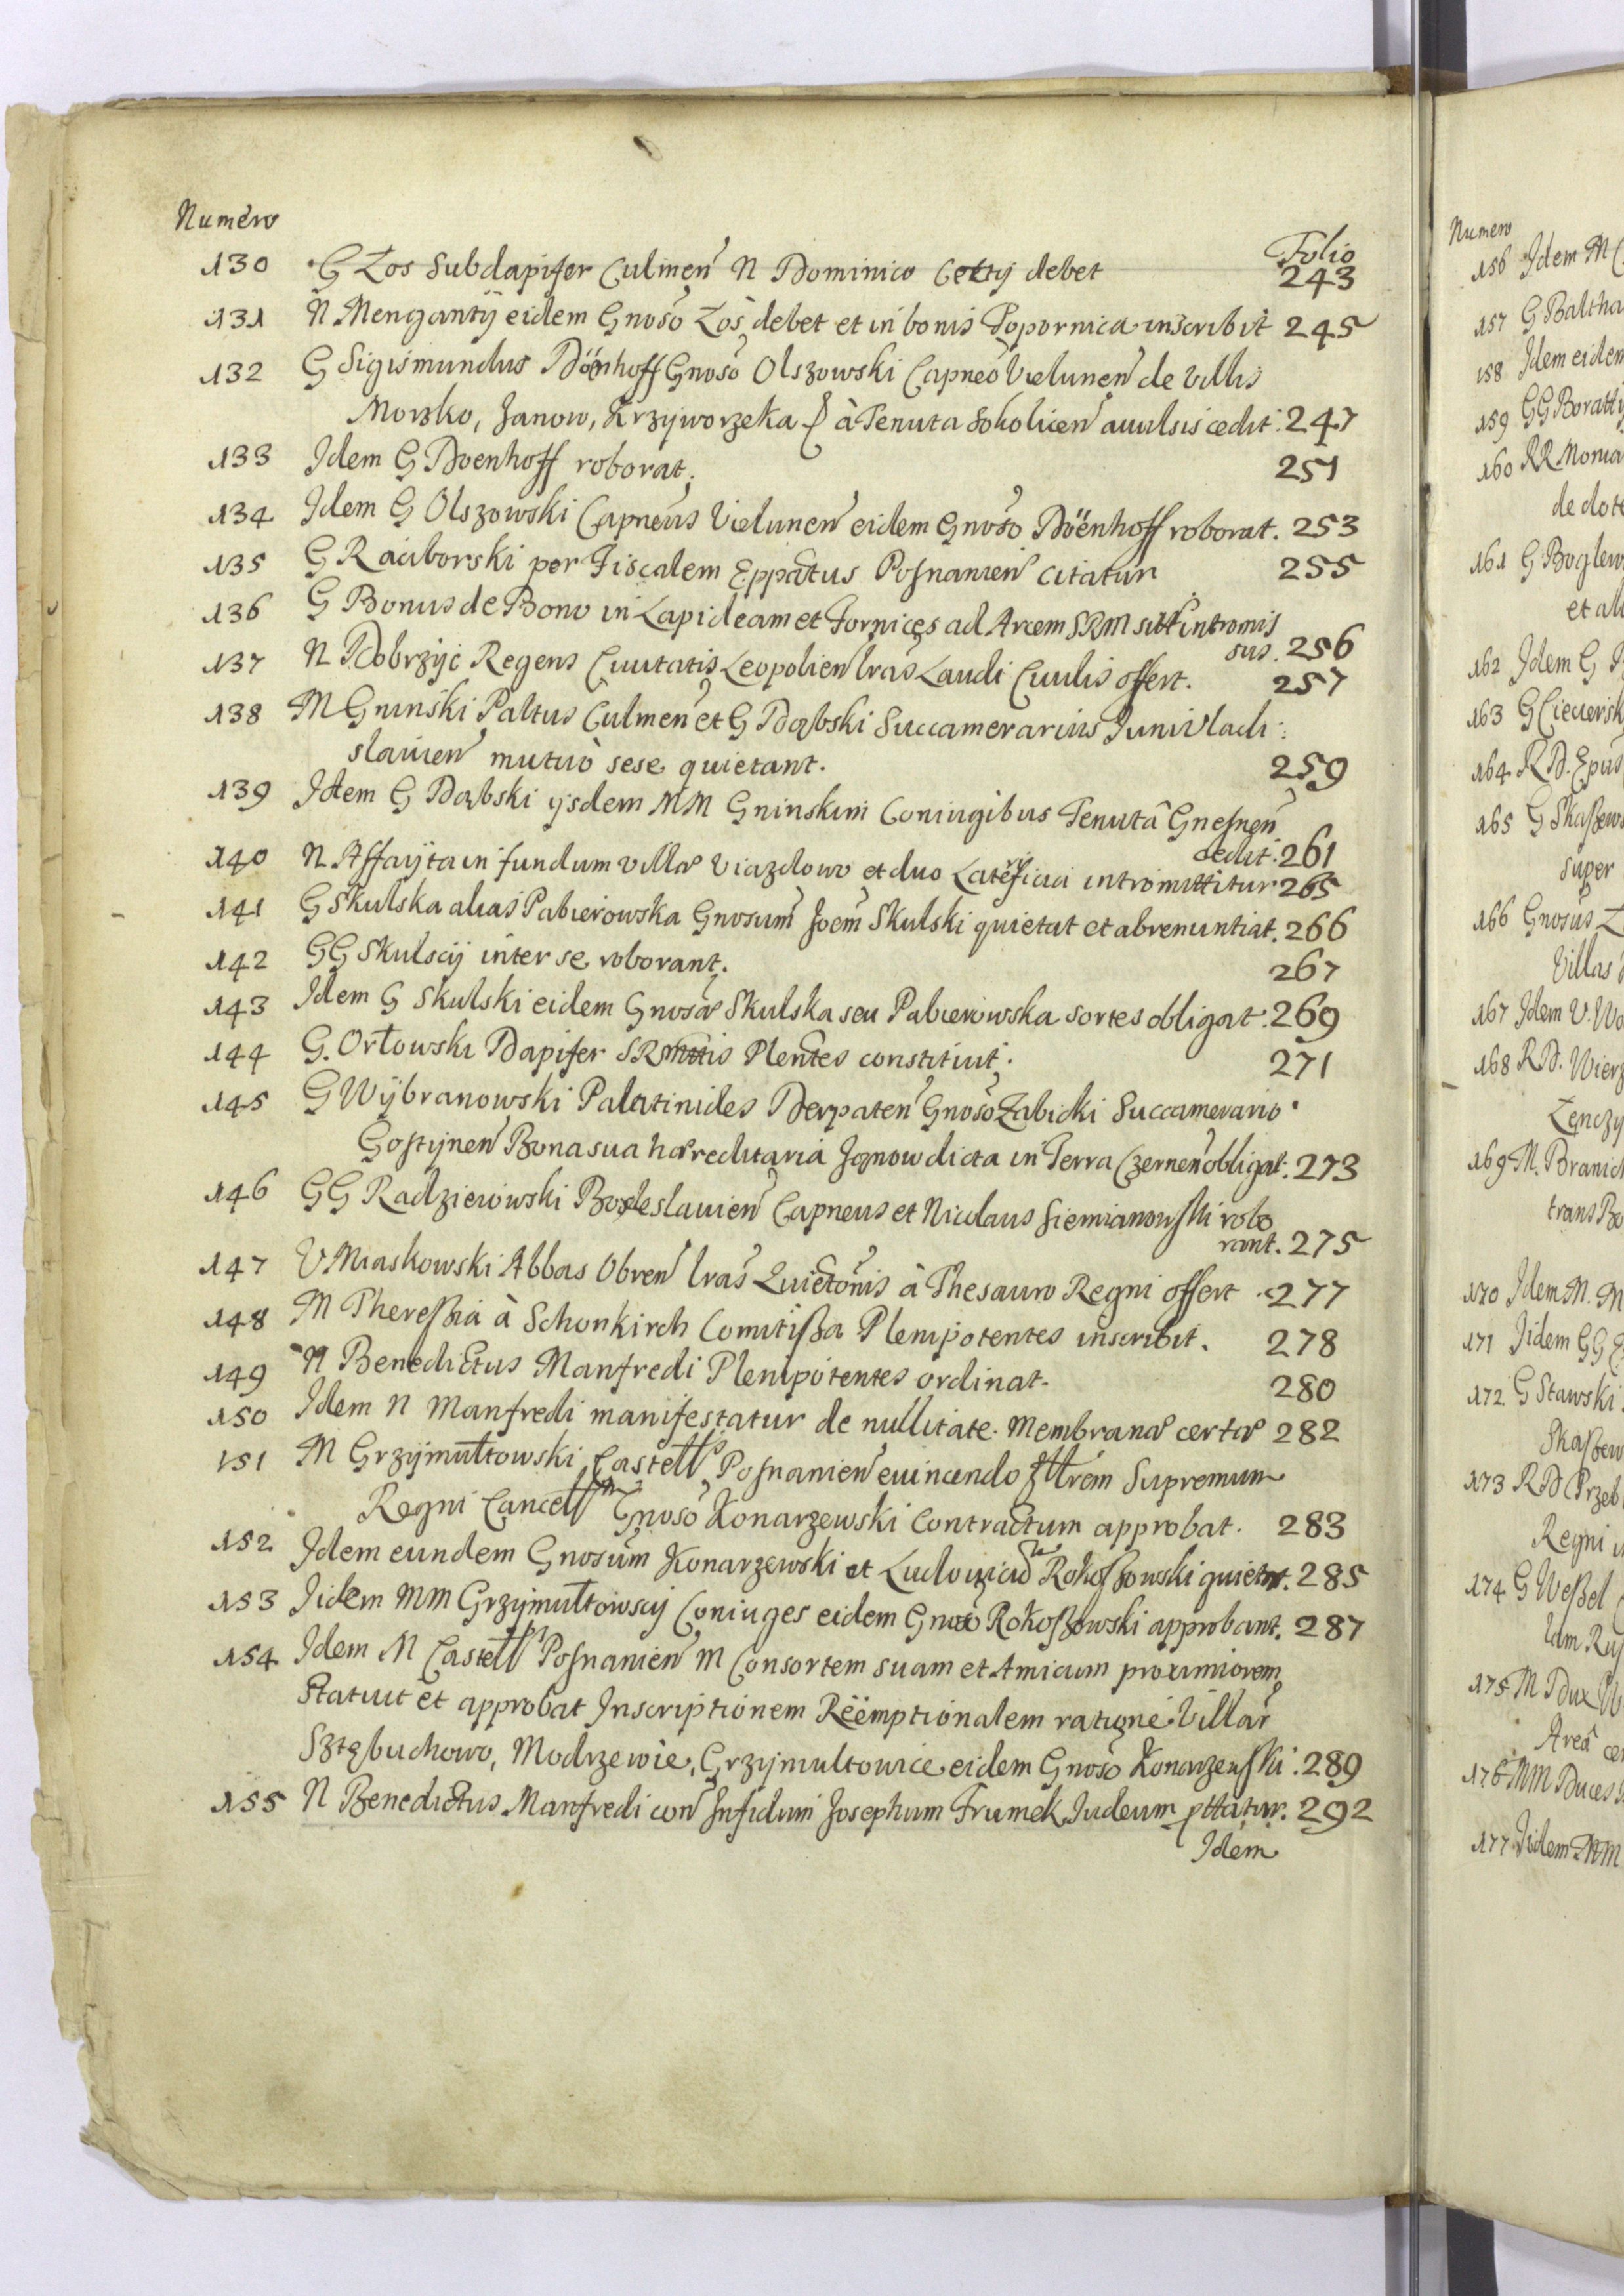 Numero
Folio
130 G Łos Subdapifer Culmen̄ N Dominico Cettij debet 243
131 N Menganty eidem Gnoso Łos debet et in bonis Topornica inscribit 245
132 G Sigismundus Dönhoff Gnoso Olszowski Capneo Vielunen̄ de Villis
Morsko, Janow, Krzyworzeka à Tenuta Sokolicen̄ auulsis cedit. 247
133 Idem G Doenhoff roborat. 251
134 Idem G Olszowski Capneus Vielunen̄ eidem Gnoso Döenhoff roborat. 253
135 G Raciborski per Fiscalem Eppatus Posnanien̄ citatur 255
136 G Bonus de Bono in Lapideam et Fornices ad Arcem SRM intromis
sus. 256
137 N Dobrzyc Regens Ciuitatis Leopolien̄ lras Laudi Ciuilis offert. 257
138 M Gninski Paltus Culmen̄ et G Dąbski Succamerarius Iuniuladi:
slauien̄ mutuò sese quietant. 259
139 Idem G Dąbski ijsdem MM Gninskim Coniugibus Tenutā Gnesnen̄
cedit. 261
140 N Affayta in fundum villæ Viazdowo et duo intromittitur 265
141 G Skulska alias Pabierowska Gnosum Joem Skulski quietat et abrenuntiat. 266
142 GG Skulscij inter se roborant. 267
143 Idem G Skulski eidem Gnosæ Skulska seu Pabierowska sortes obligat. 269
144 G. Orłowski Dapifer Plentes constituit. 271
145 G Wÿbranowski Palatinides Derpaten̄ Gnoso Zabicki Succamerario
Gostynen̄ Bona sua hæreditaria Janow dicta in Terra Czernen̄ obligat. 273
146 GG Radzieiowski Boleslauien̄ Capneus et Nicolaus Siemianowski robo
rant. 275
147 V Miaskowski Abbas Obren̄ lras Quietōnis à Thesauro Regni offert. 277
148 M Theressia à Schonkirch Comitissa Plenipotentes inscribit. 278
149 N Benedictus Manfredi Plenipotentes ordinat. 280
150 Idem N Manfredi manifestatur de nullitate Membranæ certæ 282
151 M Grzymułtowski Castell Posnanien̄ euincendo Supremum
Regni Cancell Gnoso Konarzewski Contractum approbat. 283
152 Idem eundem Gnosum Konarzewski et Ludouicum Rokossowski quietat. 285
153 Iidem MM Grzymułtowscij Coniuges eidem Gnoso Rokossowski approbant. 287
154 Idem M Castell Posnanien̄ M Consortem suam et Amicum proximiorem
statuit et approbat Inscriptionem Rëemptionalem ratione Villar
Sztębuchowo, Modrzewie, Grzymultowice eidem Gnoso Konarzewski. 289
155 N Benedictus Manfredi con̄ Infidum Josephum Frumek Iudeum pttatur. 292
Idem
Numero
156 Idem M
157 G Baltha
158 Idem eidem
159 GG Boratty
160 RR Monia
de dote
161 G Boglew
et ali
162 Idem G
163 G Cieciersk
164 R D. Epus
165 G Skassews
super
166 Gnosus
Villas
167 Idem V. Wo
168 RD. Wierz
Lenczy
169 M. Branick
trans Bo
170 Idem M. M
171 Iidem GG
172 G Stawski
Skassew
173 RD Przeb
Regni
174 G Wessel
175 M Dux
Areā
176 MM Duces
177 Iidem MM